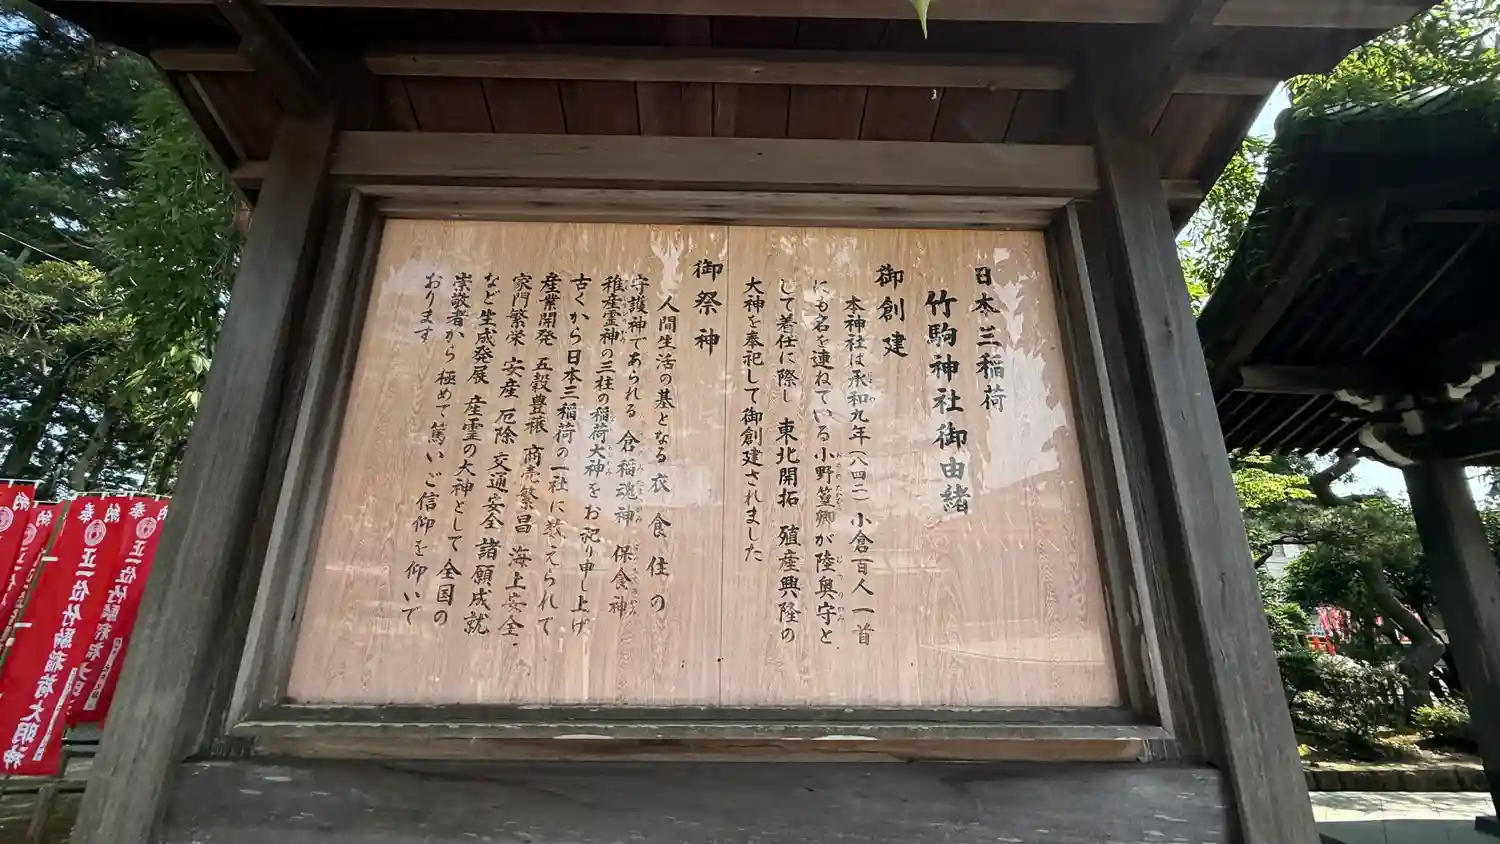 日本三稲荷
竹駒神社御由緒
御創建
本神社は承和九年(八四二)小倉百人一首
にも名を連ねている小野篁卿が陸奥守と
して着任に際し 東北開拓 殖産興隆の
大神を奉祀して御創建されました
御祭神
人間生活の基となる衣 食 住の
守護神であられる 倉稲魂神 保食神
稚産霊神の三柱の稲荷大神をお祀り申し上げ
古くから日本三稲荷の一社に数えられて
産業開発 五穀豊穣 商売繁昌 海上安全
家門繁栄 安産 厄除 交通安全 諸願成就
など生成発展 産霊の大神として全国の
崇敬者から極めて篤いご信仰を仰いで
おります
奉納
正一位竹駒稲荷大明神
奉納
正一位竹駒稲荷大明